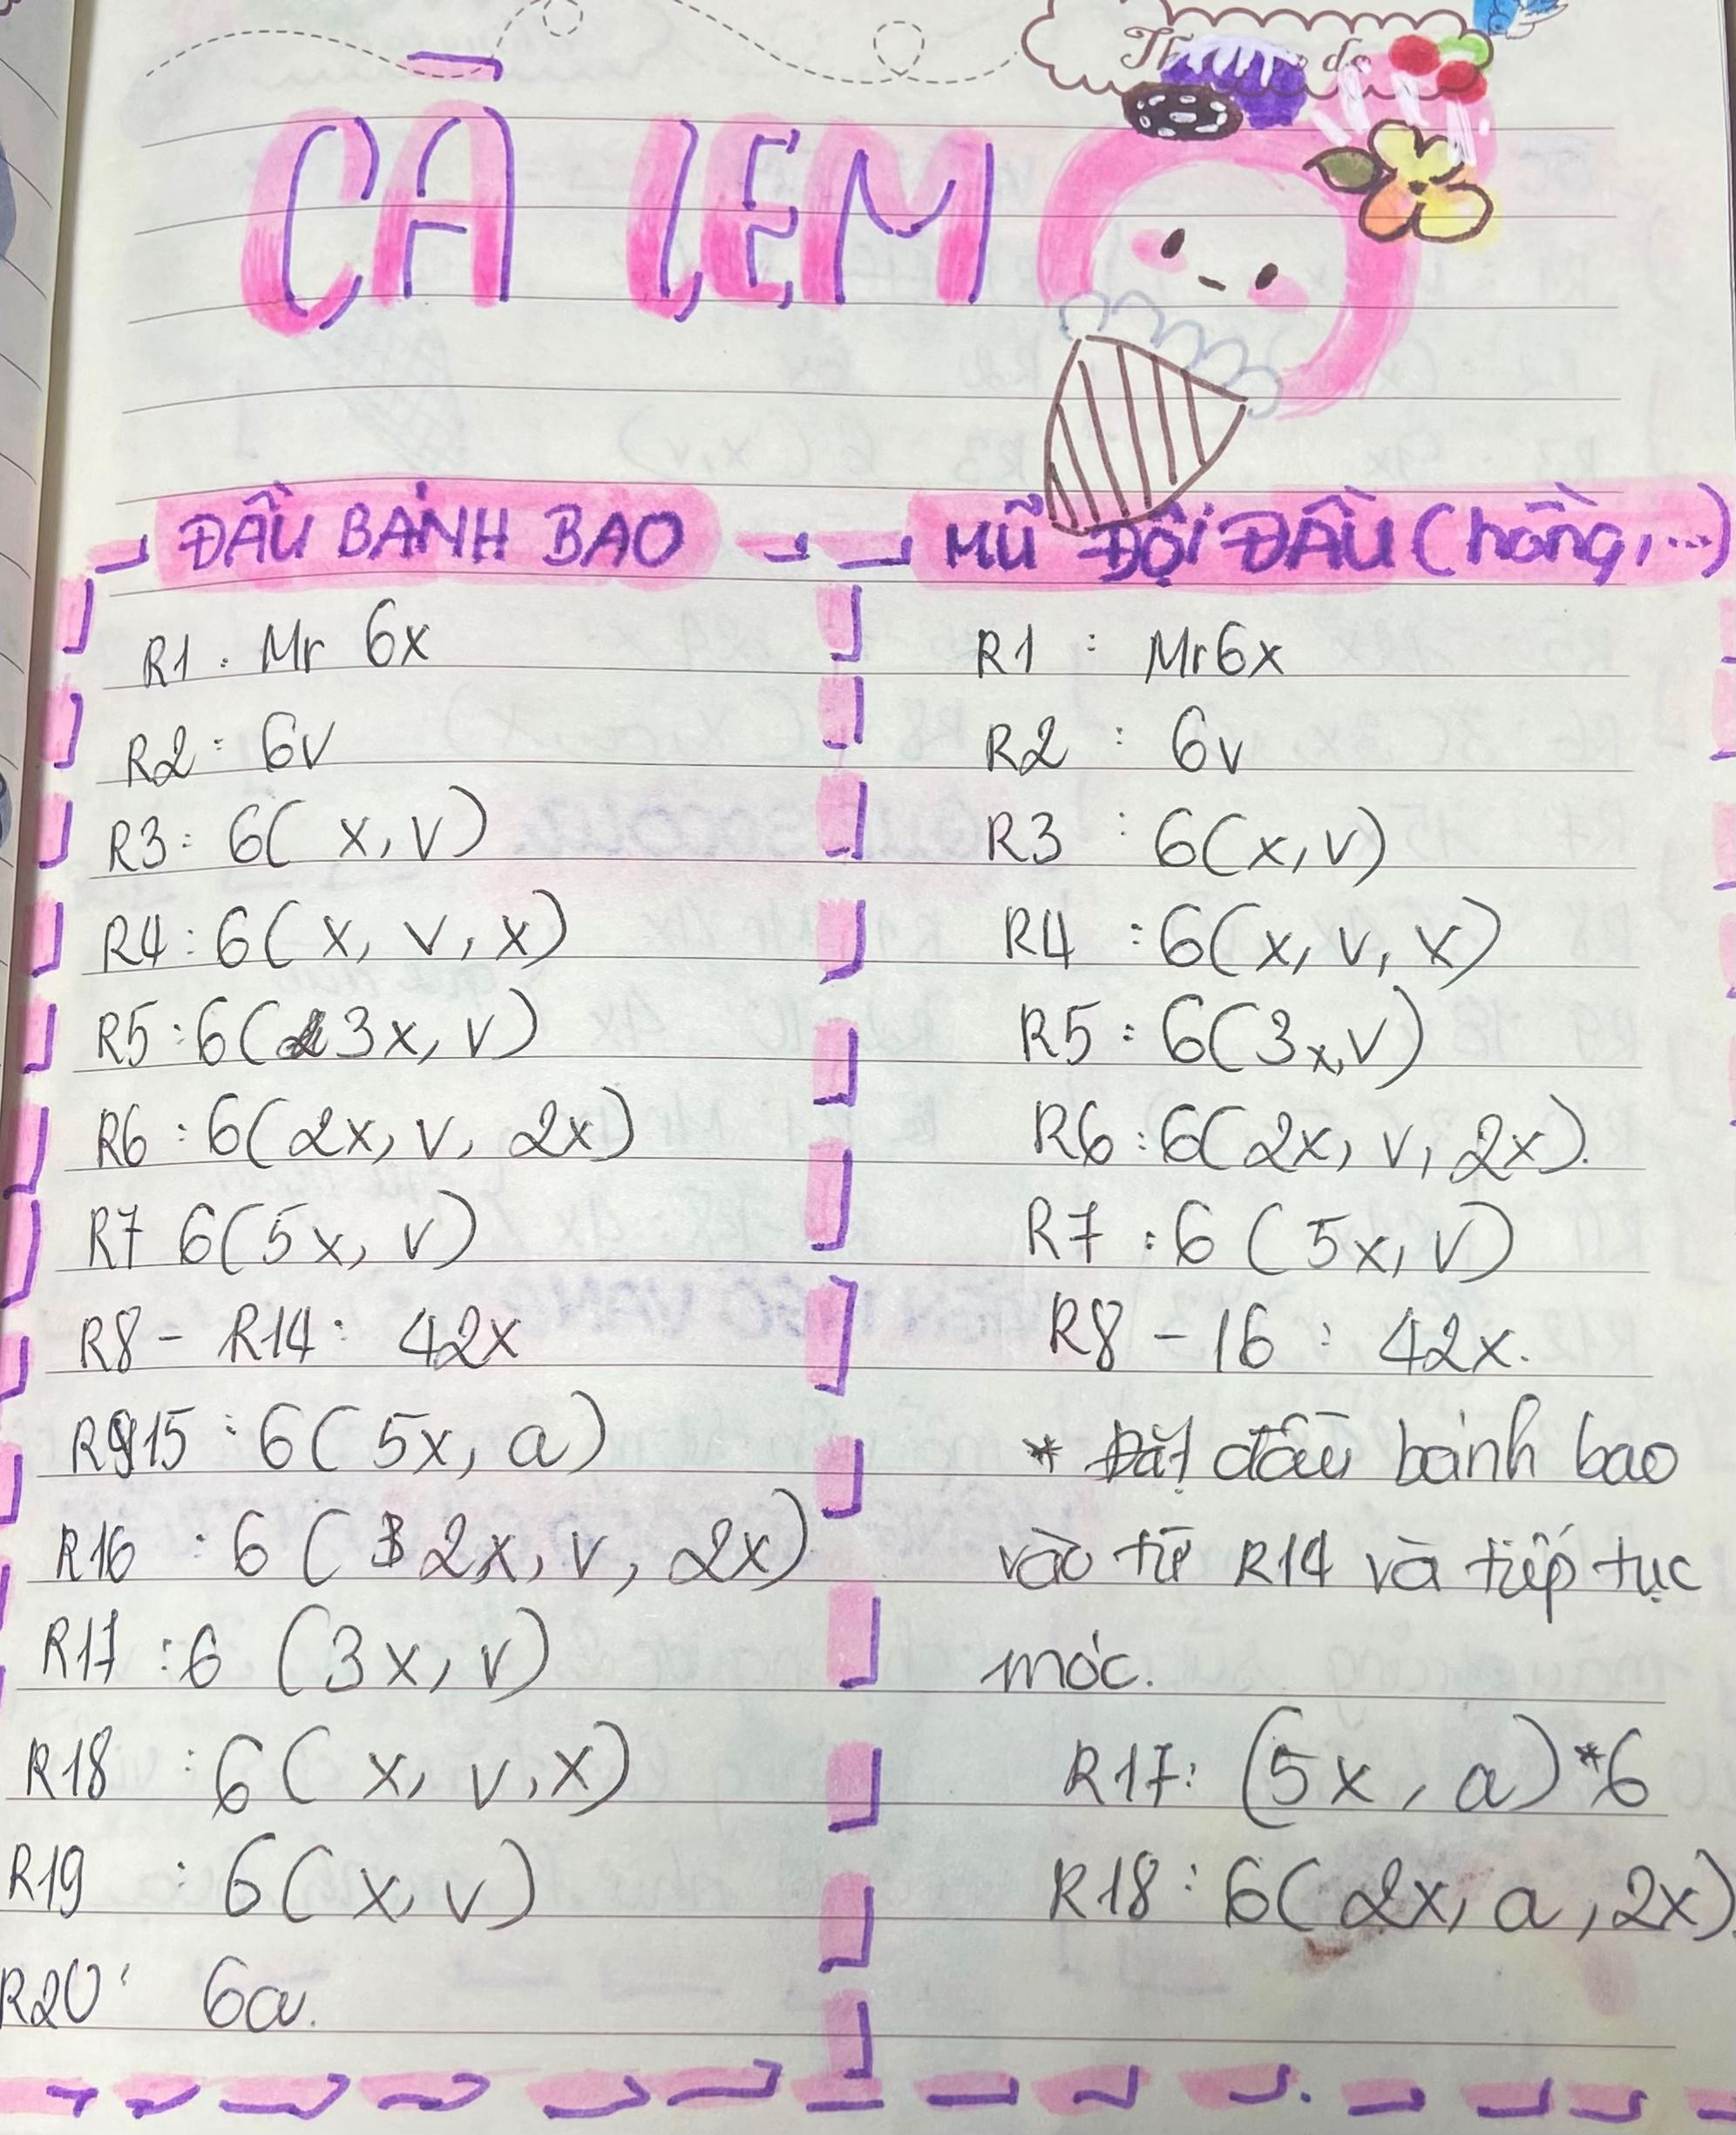 CÀ LEM
ĐẦU BÁNH BAO
R1 : Mr 6x
R2 : 6v
R3 : 6( x, v)
R4 : 6( x, v, x)
R5 : 6( 3x, v)
R6 : 6(2x, v, 2x)
R7 6(5x, v)
R8 - R14 : 42x
R15 : 6( 5x, a)
R16 : 6 ( 2x, v, 2x)
R17 : 6 (3x, v)
R18 : 6( x, v, x)
R19 : 6( x, v)
R20 : 6a.
MŨ ĐỘI ĐẦU (hồng,...)
R1 : Mr6x
R2 : 6v
R3 : 6(x, v)
R4 : 6(x, v, x)
R5 : 6(3x, v)
R6 : 6(2x, v, 2x).
R7 : 6 ( 5x, v)
R8 - 16 : 42x.
* Đặt đầu bánh bao
vào từ R14 và tiếp tục
móc.
R17: (5x, a)*6
R18 : 6( 2x, a, 2x).